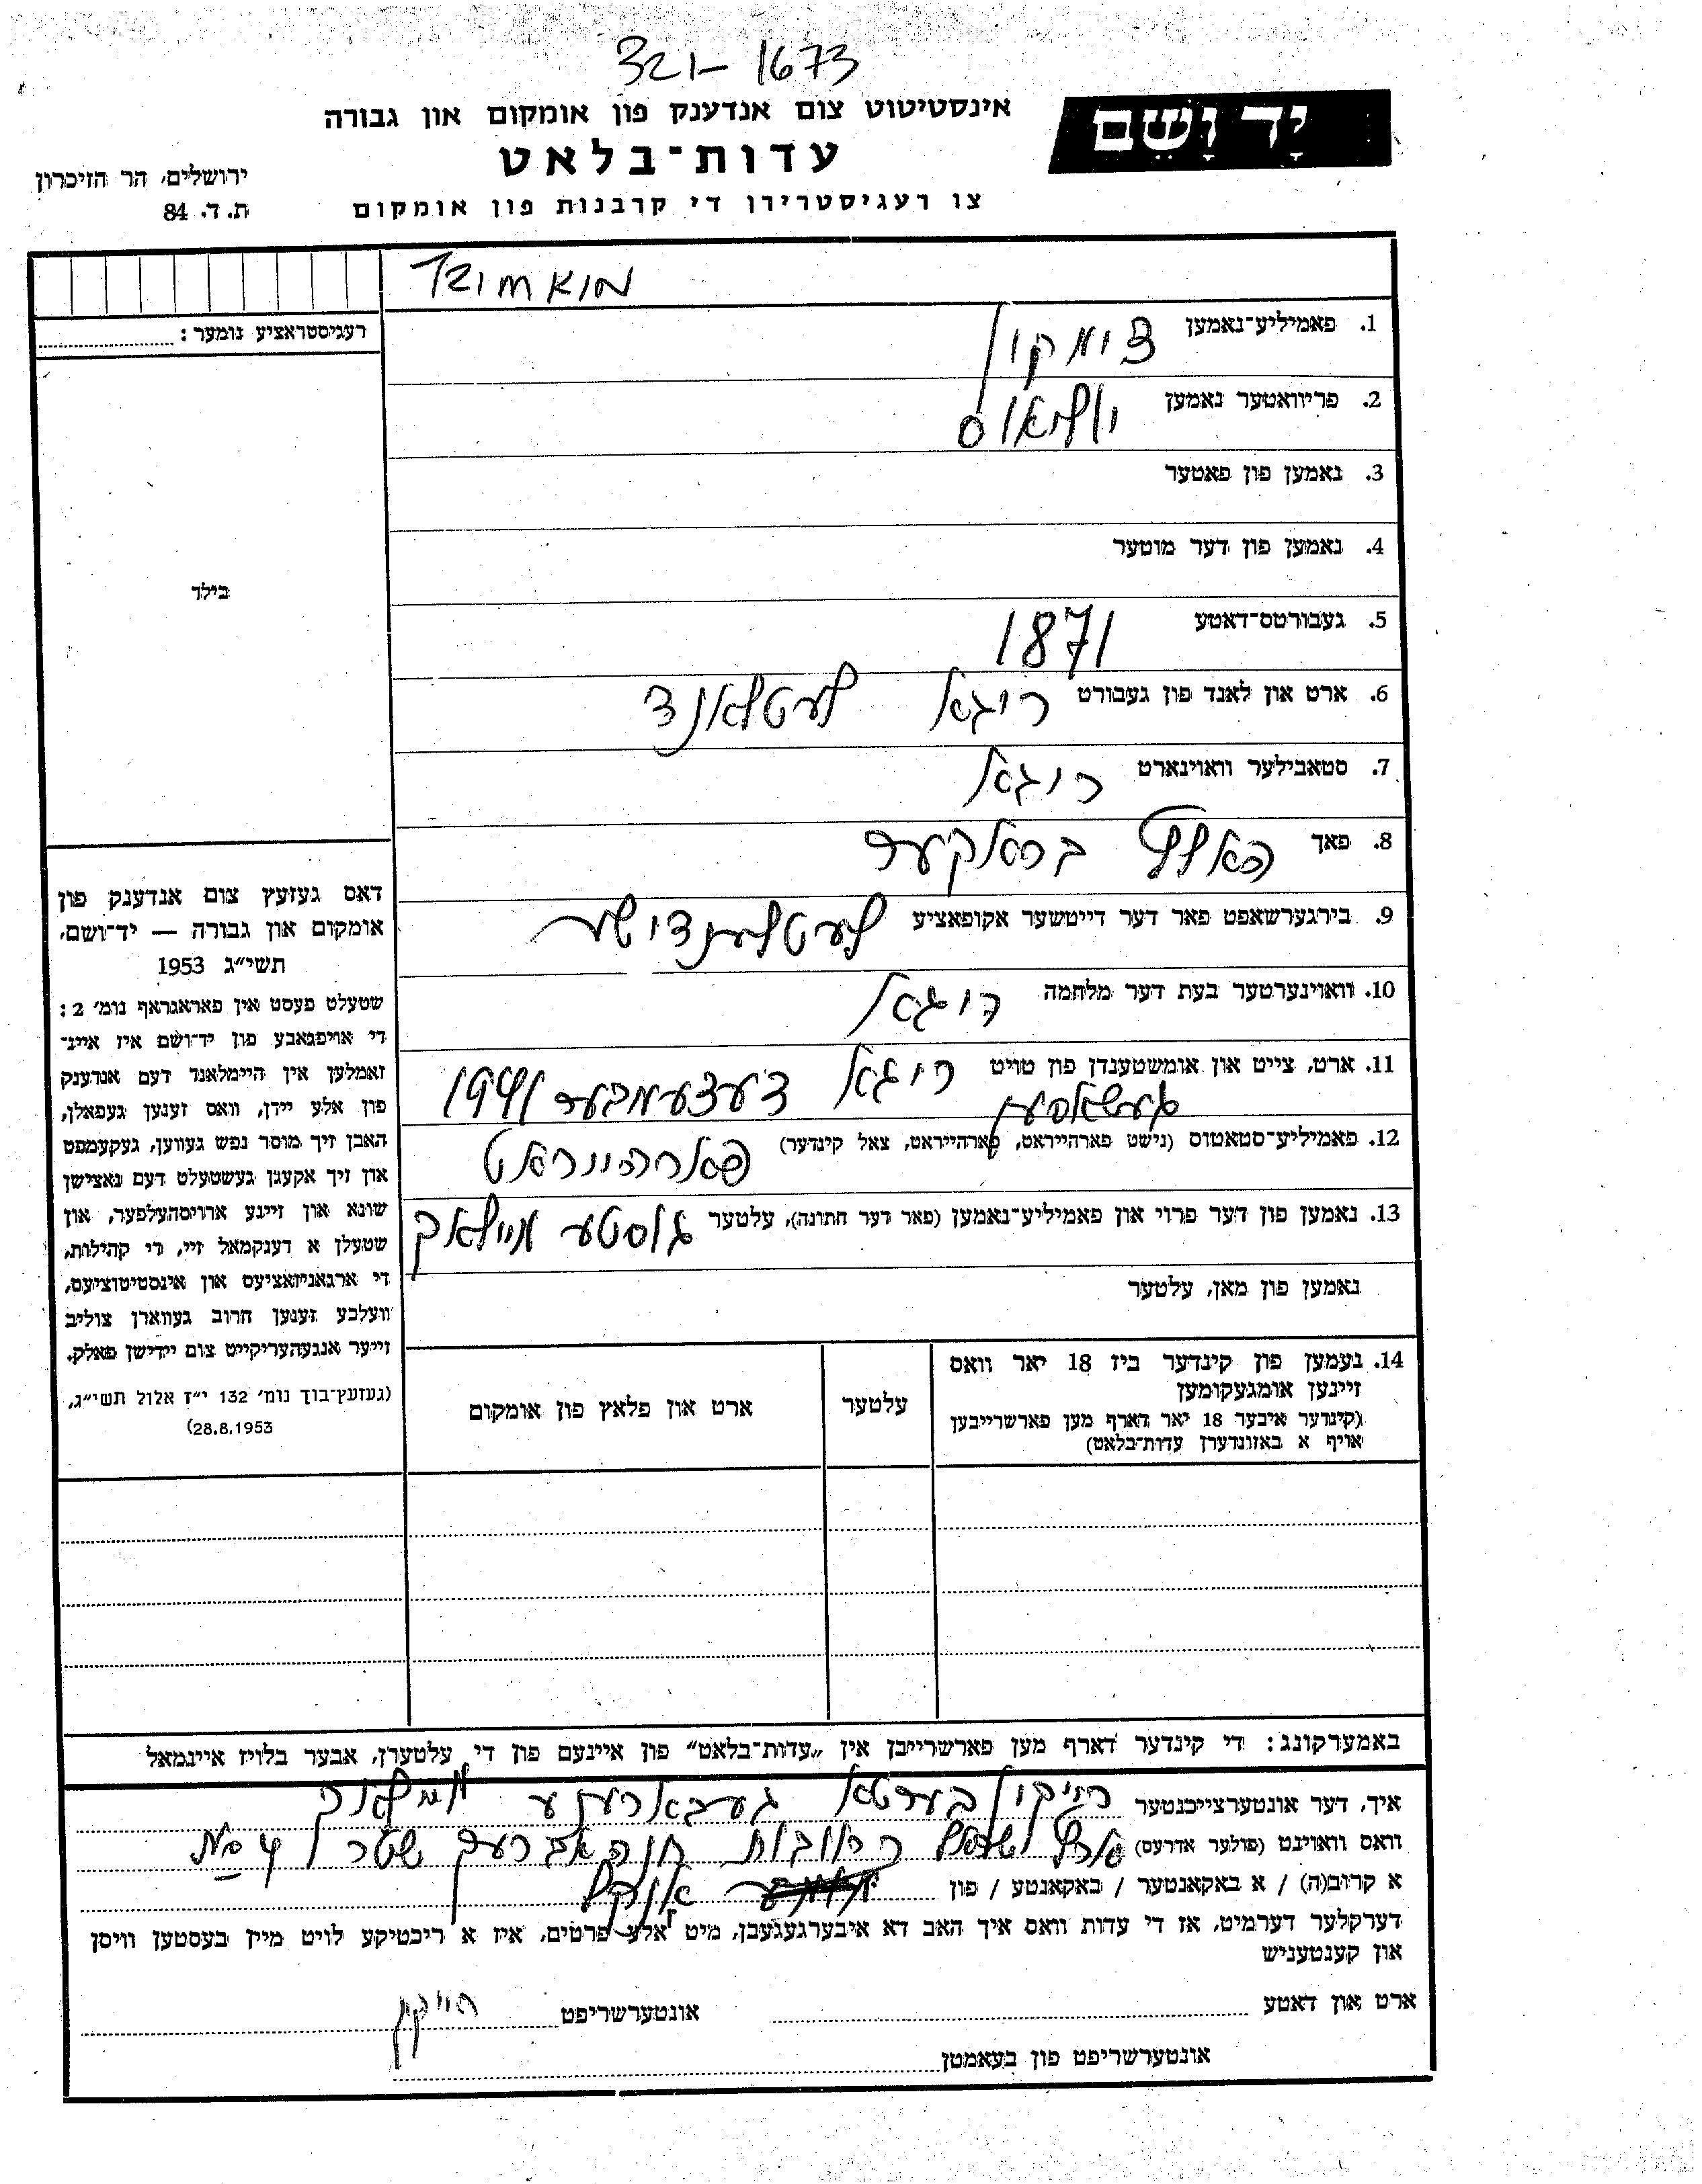 321-1673
יָד וָשֵׁם
אינסטיטוט צום אנדענק פון אומקום און גבורה
עדות־בלאט
צו רעגיסטרירן די קרבנות פון אומקום
ירושלים, הר הזיכרון
ת. ד. 84
רעגיסטראציע נומער:
בילד
1. פאמיליע־נאמען צימקין
2. פריוואטער נאמען יוליאוס
3. נאמען פון פאטער
4. נאמען פון דער מוטער
5. געבורטס־דאטע 1871
6. ארט און לאנד פון געבורט ריגא לעטלאנד
7. סטאבילער וואוינארט ריגא
8. פאך בראקער
9. בירגערשאפט פאר דער דייטשער אקופאציע לעטלענדישער
10. וואוינערטער בעת דער מלחמה ריגא
11. ארט, צייט און אומשטענדן פון טויט ריגא דעצעמבער 1941
12. פאמיליע־סטאטוס (נישט פארהייראט, פארהייראט, צאל קינדער) פארהייראט
13. נאמען פון דער פרוי און פאמיליע־נאמען (פאר דער חתונה), עלטער גוסטע
נאמען פון מאן, עלטער
14. נעמען פון קינדער ביז 18 יאר וואס
זיינען אומגעקומען
(קינדער איבער 18 יאר דארף מען פארשרייבען
אויף א באזונדערן עדות־בלאט)
עלטער
ארט און פלאץ פון אומקום
דאס געזעץ צום אנדענק פון
אומקום און גבורה — יד־ושם,
תשי״ג 1953
שטעלט פעסט אין פאראגראף נומ׳ 2:
די אויפגאבע פון יד־ושם איז איינ־
זאמלען אין היימלאנד דעם אנדענק
פון אלע יידן, וואס זענען געפאלן,
האבן זיך מוסר נפש געווען, געקעמפט
און זיך אקעגן געשטעלט דעם נאצישן
שונא און זיינע ארויסהעלפער, און
שטעלן א דענקמאל זיי, די קהילות,
די ארגאניזאציעס און אינסטיטוציעס,
וועלכע זענען חרוב געווארן צוליב
זייער אנגעהעריקייט צום יידישן פאלק.
(געזעץ־בוך נומ׳ 132 י״ז אלול תשי״ג,
28.8.1953)
באמערקונג: די קינדער דארף מען פארשרייבן אין „עדות־בלאט“ פון איינעם פון די עלטערן, אבער בלויז איינמאל
איך, דער אונטערצייכנטער בערטא געבארענע
וואס וואוינט (פולער אדרעס) רחובות
א קרוב(ה) / א באקאנטער / באקאנטע / פון אונקל
דערקלער דערמיט, אז די עדות וואס איך האב דא איבערגעגעבן, מיט אלע פרטים, איז א ריכטיקע לויט מיין בעסטען וויסן
און קענטעניש
ארט און דאטע
אונטערשריפט
אונטערשריפט פון בעאמטן